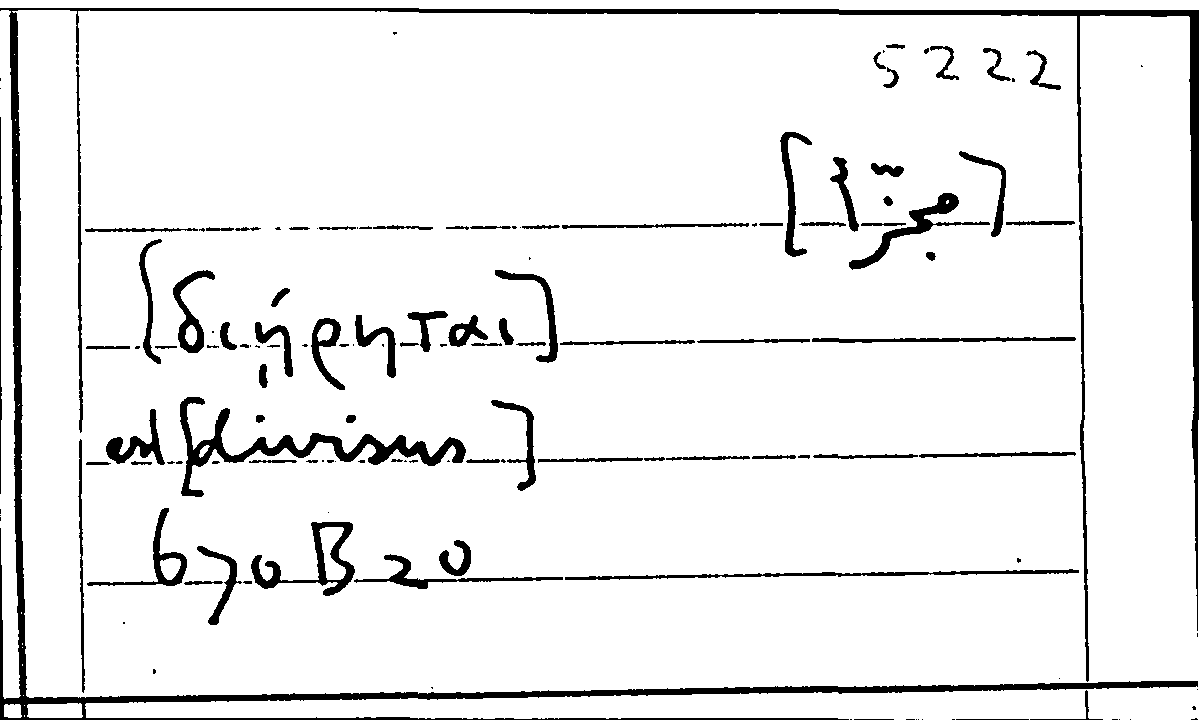 5222
[διῄρηται]
est [divisus]
670B20